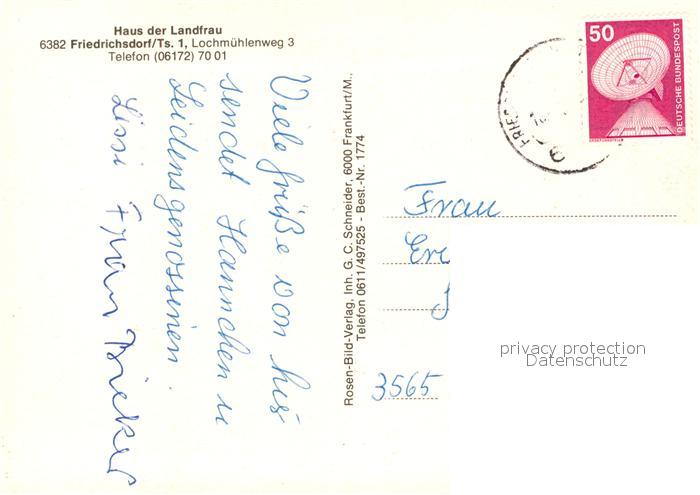 Haus der Landfrau
6382 Friedrichsdorf/Ts. 1, Lochmühlenweg 3
Telefon (06172) 70 01
Viele Grüße von hier
sendet Hannchen u
Leidensgenossinen.
Lissi Frau
Rosen-Bild-Verlag, Inh. G. C. Schneider, 6000 Frankfurt/M.,
Telefon 0611/497525 - Best.-Nr. 1774
50
DEUTSCHE BUNDESPOST
FRIED
Frau
3565
privacy protection
Datenschutz